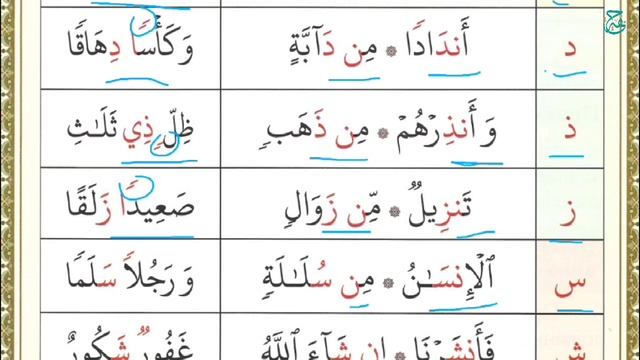 د أَندَادًا ۞ مِن دَآبَّةٍ وَكَأْسًا دِهَاقًا
ذ وَأَنذِرْهُمْ ۞ مِن ذَهَبٍ ظِلٍّ ذِي ثَلَٰثِ
ز تَنزِيلٌ ۞ مِّن زَوَالٍ صَعِيدًا زَلَقًا
س ٱلْإِنسَٰنُ ۞ مِن سُلَٰلَةٍ وَرَجُلًا سَلَمًا
ش فَأَنشَرْنَا ۞ إِن شَآءَ ٱللَّهُ غَفُورٌ شَكُورٌ